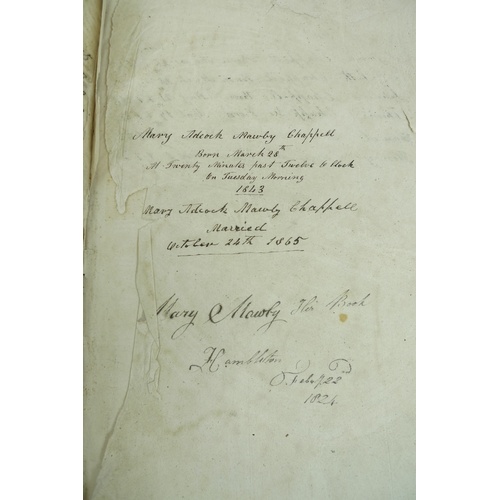 Mary Adcock Mawby Chappell
Born March 28th
At Twenty Minutes past Twelve o Clock
On Tuesday Morning
1843
Mary Adcock Mawby Chappell
Married
October 24th 1865
Mary Mawby Her Book
Hambleton
Feby 22nd
1824